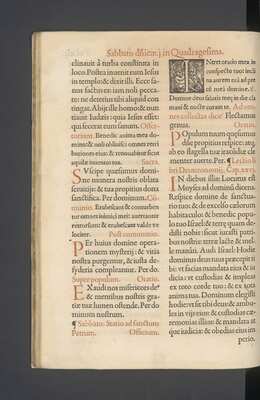 Sabbato dñicæ. j in Quadragesima.
clinauit à turba constituta in
loco. Postea inuenit eum Iesus
in templo: & dixit illi. Ecce sa-
nus factus es: iam noli pecca-
re: ne deterius tibi aliquid con-
tingat. Abijt ille homo: & nun
tiauit Iudæis: quia Iesus esset:
qui fecerat eum sanum. Offer-
torium. Benedic anima mea do-
mino: & noli obliuisci omnes retri
butiones eius: & renouabitur sicut
aquilæ iuuentus tua. Sacra.
SVscipe quæsumus domi-
ne munera nostris oblata
seruitijs: & tua propitius dona
sanctifica. Per dominum. Cō-
munio. Erubescant & conturben
tur omnes inimici mei: auertantur
retrorsum: & erubescant valde ve
lociter. Post communio.
PEr huius domine opera-
tionem mysterij: & vitia
nostra purgentur, & iusta de-
syderia compleantur. Per do.
Super populum. Oratio.
EXaudi nos misericors de-
& mentibus nostris gra-
tiæ tuæ lumen ostende. Per do
minum nostrum.
¶ Sabbato. Statio ad sanctum
Petrum. Officium.
INtret oratio mea in
conspectu tuo: incli
na aurem tuā ad pre
cē meā domine.
Domine deus salutis meæ: in die cla
maui & nocte coram te. Ad om-
nes collectas dicit Flectamus
genua. Oratio.
POpulum tuum quæsumus
dñe propitius respice: atq;
ab eo flagella tuæ iracūdiæ cle
menter auerte. Per. ¶ Lectio li
bri Deuteronomij. Cap. xxvj.
IN diebus illis: Locutus est
Moyses ad dominū dicens.
Respice domine de sanctua-
rio tuo: & de excelso cælorum
habitaculo: & benedic popu-
lo tuo Israel: & terræ quam de-
disti nobis: sicut iurasti patri-
bus nostris: terræ lacte & mel-
le manāti. Audi Israel: Hodie
dominus deus tuus præcepit ti
bi: vt facias mandata eius & iu
dicia: vt custodias & impleas
ex toto corde tuo: & ex tota
anima tua. Dominum elegisti
hodie: vt sit tibi deus: & ambu-
les in vijs eius: & custodias cæ-
remonias illius: & mandata at-
que iudicia: & obedias eius im
perio.